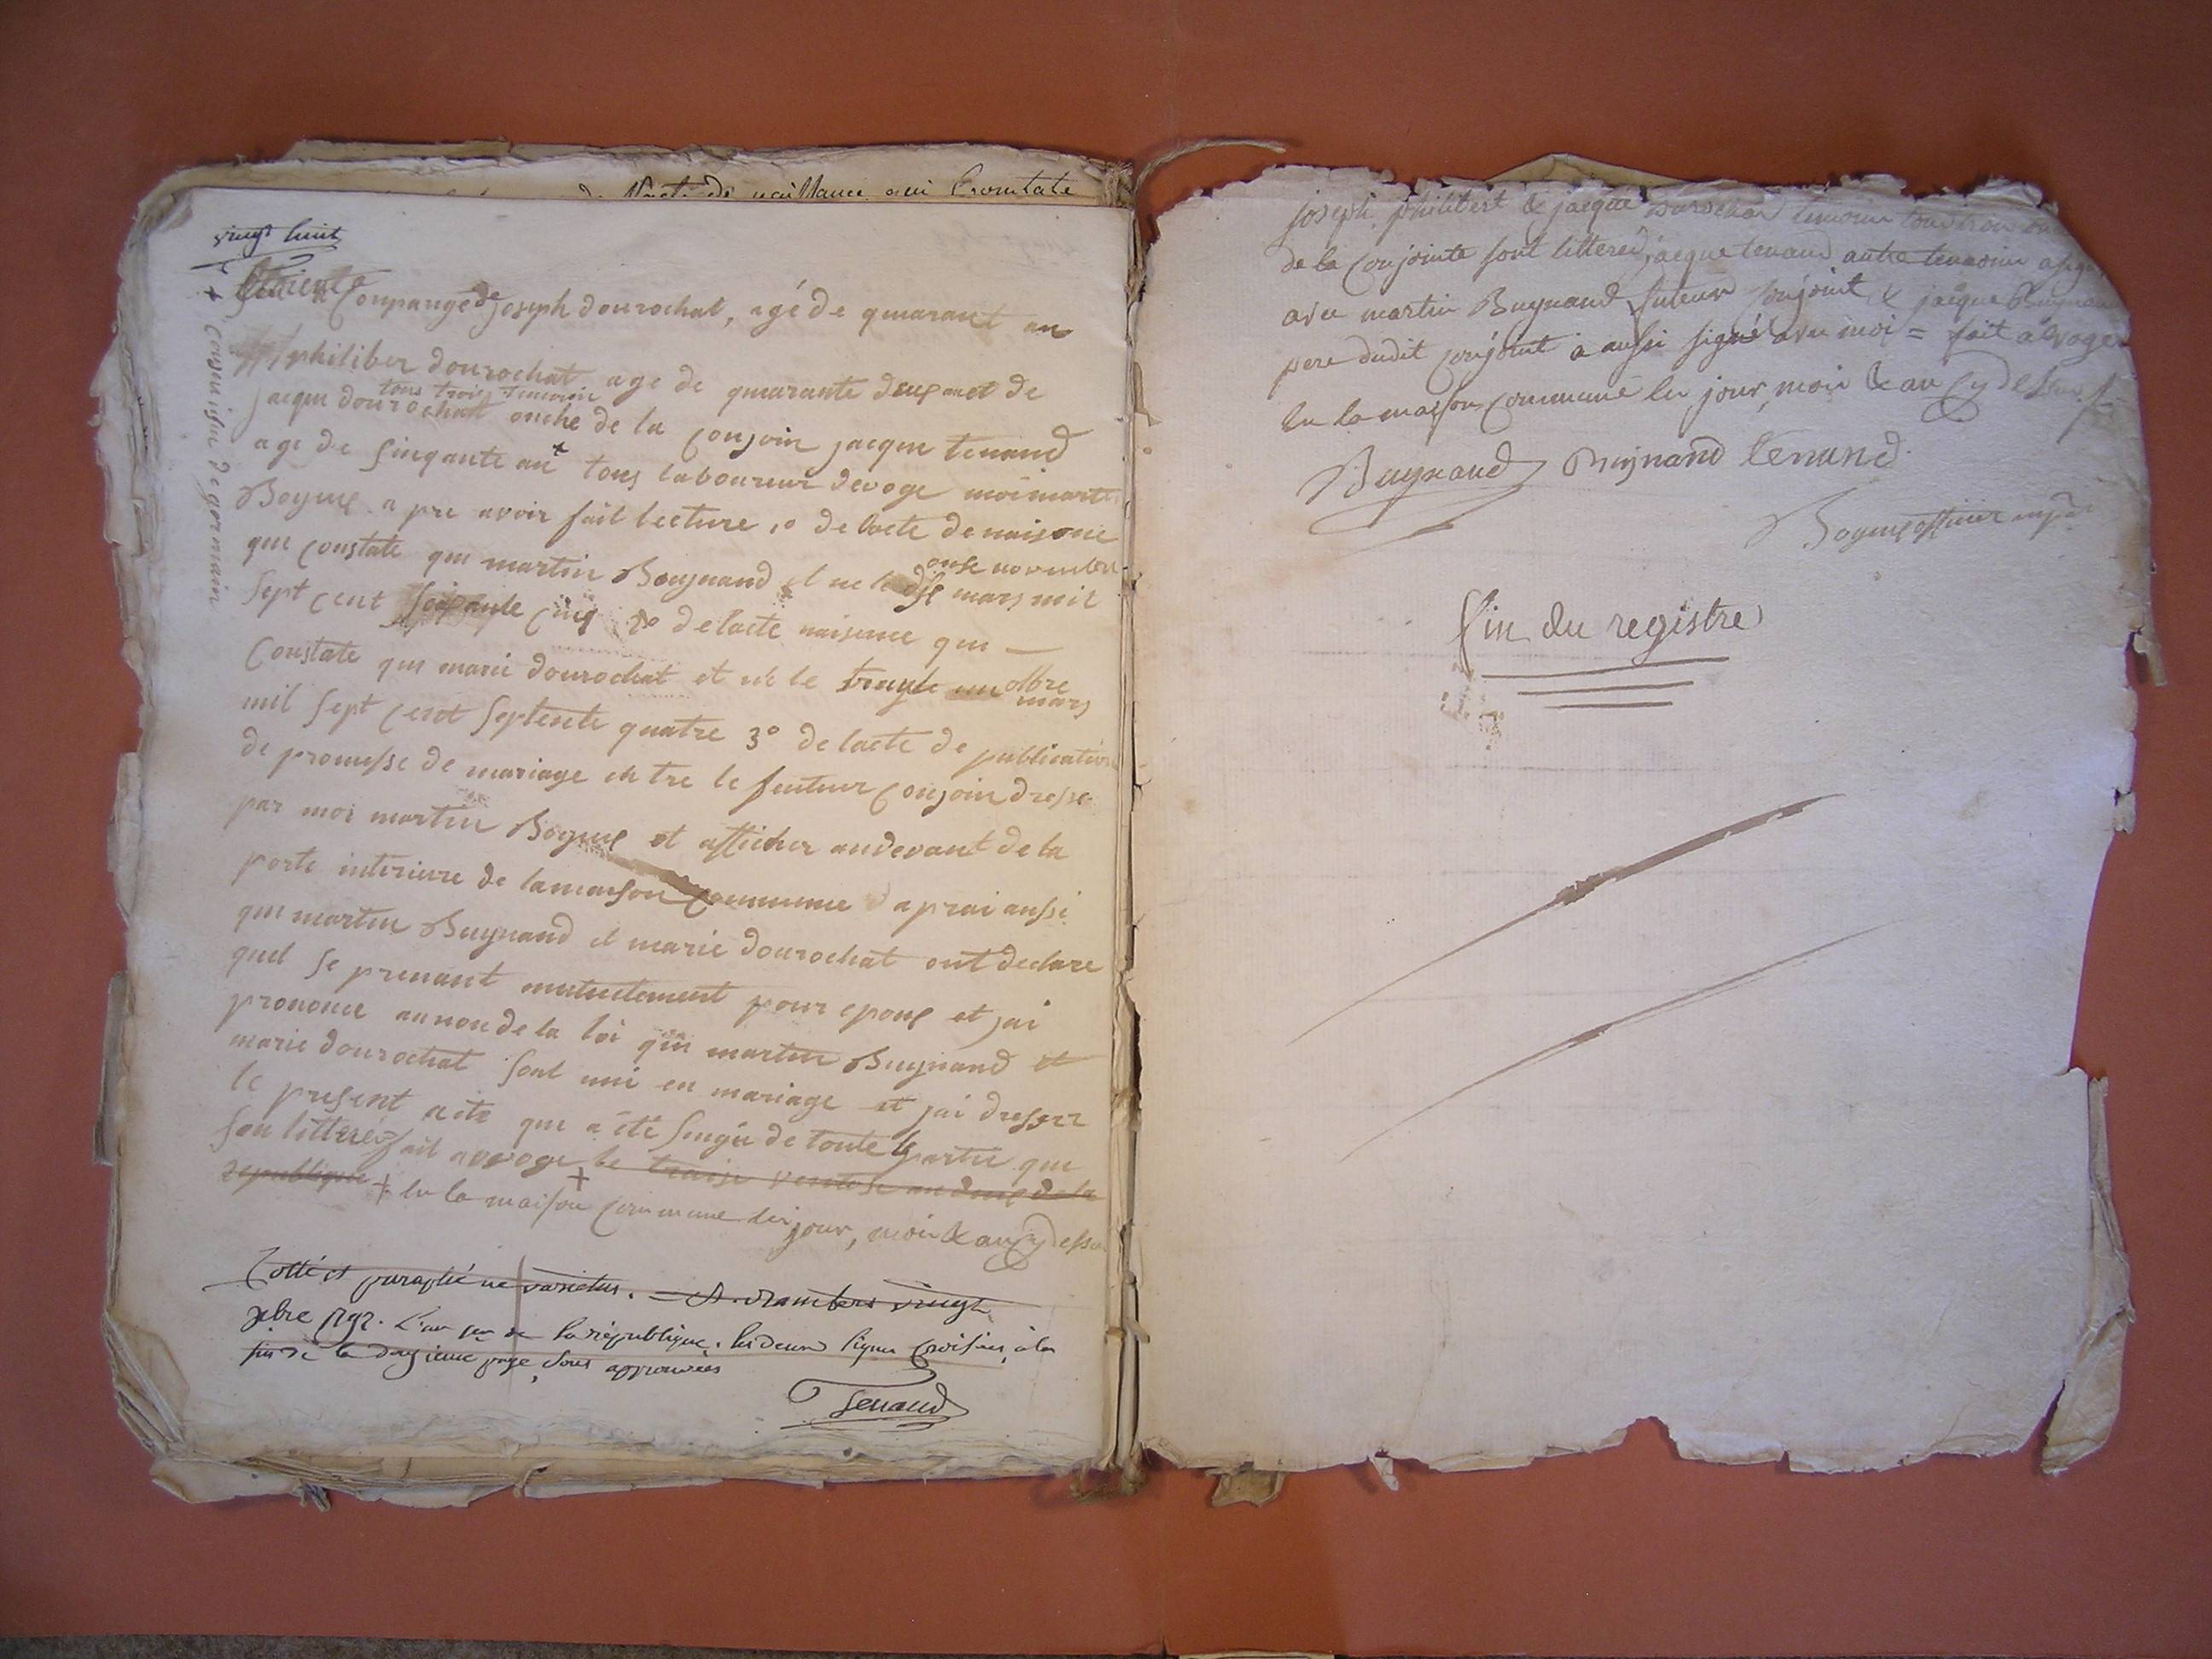 naissance qui Constate
vingt huit
Compangé de joseph dourochat, agé de quarant an
philiber dourochat age de quarante deux anet de
tous trois temoin
jacque dourochat onche de la conjoin jacque tenand
age de sinqante an + tous laboureur devoge moi martin
Bogux a pre avoir fait lecture 1º de lacte de naisance
que constate que martin Buynand et ne le dix mars mil
onse novembre
sept cent soixante cinq 2º de lacte naisance que —
Constate que marie dourochat et né le trayte un mars
olbre
mil sept cent septente quatre 3º de lacte de publication
de promesse de mariage en tre le feuteur conjoin dresse
par moi martin Bogux et afficher audevant de la
porte interieure de lamaison commune aprai aussi
que martin Buynand et marie dourochat ont declare
quel se prenant mutuelement pour epoux et jai
prononce aunon de la loi que martin Buynand et
marie dourochat sont uni en mariage et jai dresser
le present acte que a été singée de toute partie que
son litteré fait avoge le traise ventose an deux de la
republique + en la maison commune les jour, moi & an cy dessu
+ Cousin issu de germain
Cotté et paraphé ne varietur. — St. rambert vingt
xbre 1792. L'an 1er de la république. les deux lignes croisées à la
fin de la page, sont approuvées
Tenand
joseph, philibert & jacque dourochat temoin
de la conjointe sont litteré, jacque tenand autre temoin a signé
avec martin Buynand futeur conjoint, & jacque Buynand
pere dudit conjoint a aussi signé avec moi = fait a voge
en la maison commune les jour, moi & an cy dessus
Buynand Buynand tenand
Bogux officier
fin du registre